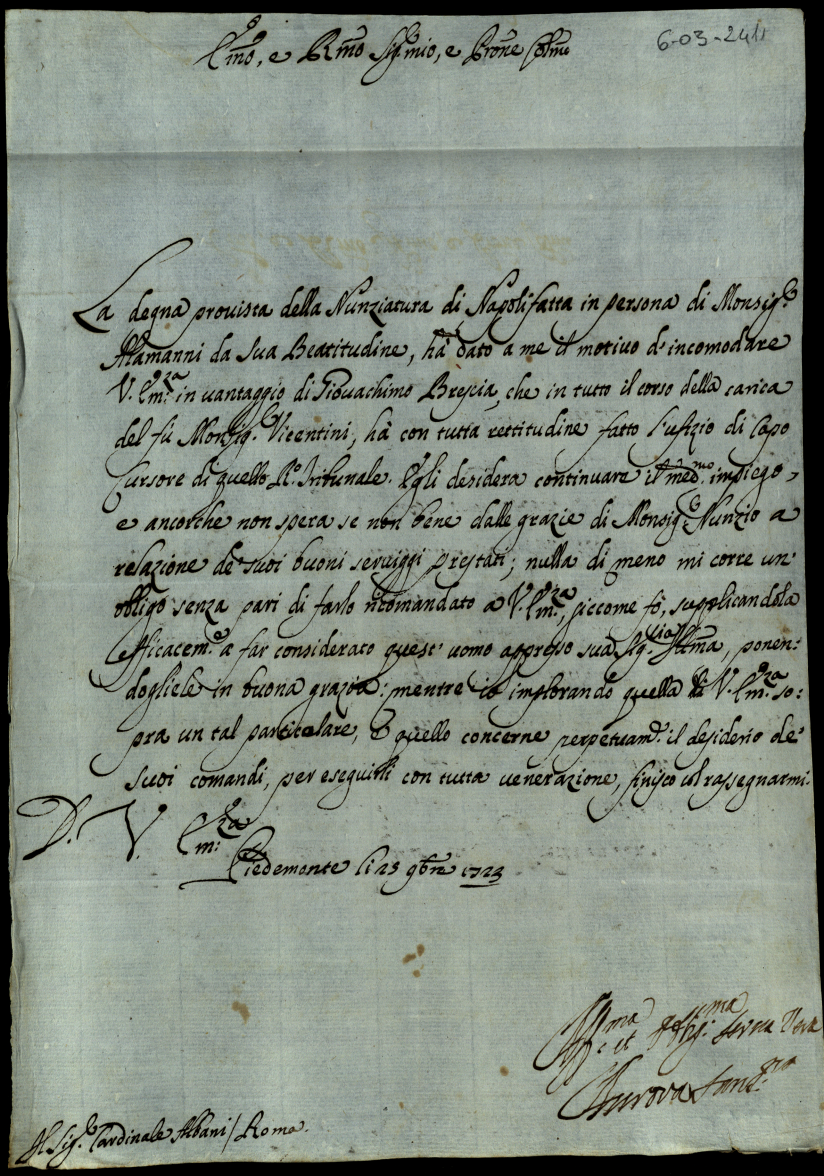 Em̃o, e Rm̃o Sig.r mio, e Prone Colmo
6-03-241
La degna prouista della Nunziatura di Napoli fatta in persona di Monsig.r
Alamanni da Sua Beatitudine, hà dato a me il motiuo d'incomodare
V. Em.za in uantaggio di Giouachimo Brescia, che in tutto il corso della carica
del fù Monsig.r Vicentini, hà con tutta rettitudine fatto l'ufizio di Capo
Cursore di quello R.o Tribunale. Egli desidera continuare il med.mo impiego,
e ancorche non spera se non bene dalle grazie di Monsig.r Nunzio a
relazione de' suoi buoni seruiggi prestati; nulla di meno mi corre un'
obligo senza pari di farlo ricomandato a V. Em.za, siccome fò, supplicandola
efficacem.e a far considerato quest'uomo appresso sua Sig.ria Illma, ponen:
dogliele in buona grazia: mentre io implorando quella di V. Em.za so:
pra un tal particolare, e quello concerne perpetuam.e il desiderio de'
suoi comandi, per eseguirli con tutta uenerazione, finisco col rassegnarmi.
D. V. Em.za
Piedemonte li 25 9bre 1723
Serua Vera
Aurora San
Al Sig.r Cardinale Albani / Roma.